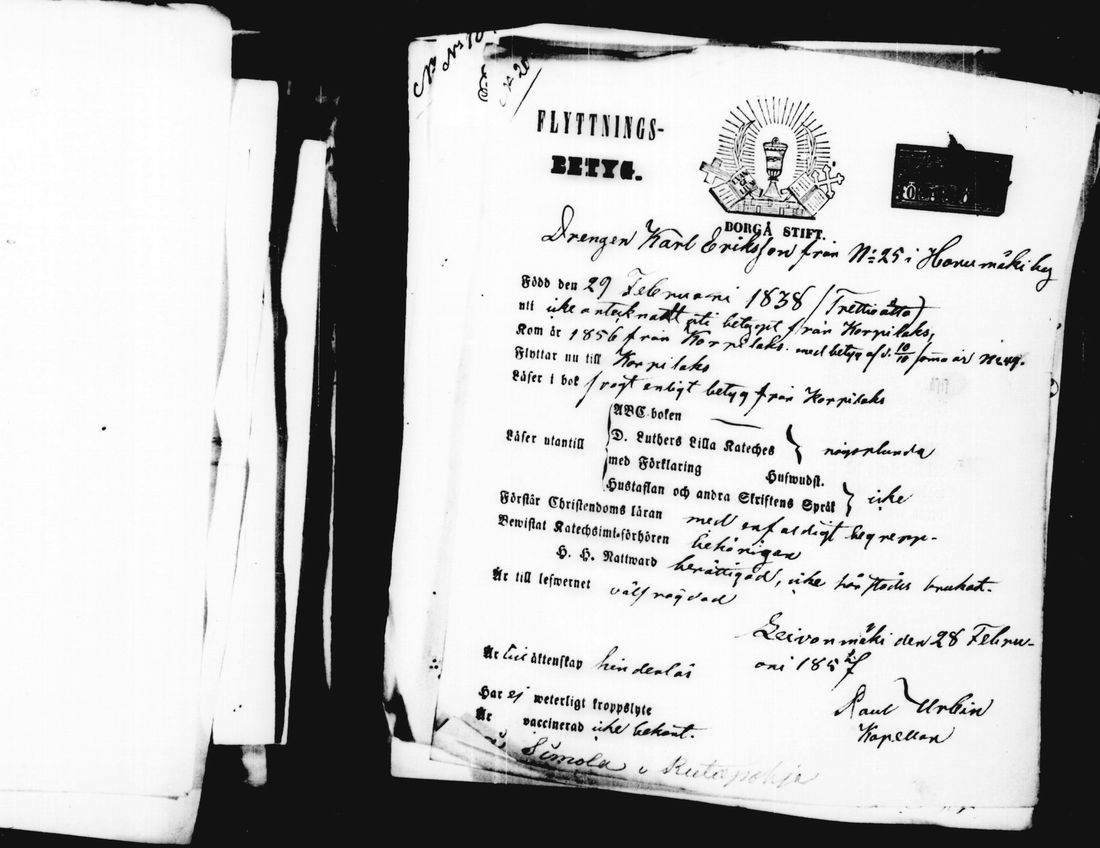 No No 10.
No 20
FLYTTNINGS-
BETYG.
BORGÅ STIFT.
Drengen Karl Eriksson från No 25 i Havumäki by
Född den 29 Februari 1838 (Trettioåtta)
uti icke antecknadt uti betyget från Korpilaks,
Kom år 1856 från Korpilaks. med betyg af d. 10/10 samma år No 49.
Flyttar nu till Korpilaks
Läser i bok svagt enligt betyg från Korpilaks
ABC-boken —
Läser utantill D. Luthers Lilla Kateches någorlunda
med Förklaring Hufwudst.
Hustaflan och andra Skriftens Språk icke
Förstår Christendoms läran med enfaldigt begrepp.
Bewistat Katechismi-förhören behörigen
H. H. Nattward berättigad, icke härstädes brukat.
Är till lefwernet välfrägdad
Leivonmäki den 28 Febru-
ari 1857
Är till äktenskap hinderlös
Har ej weterligt kroppslyte
Paul Urbin
Kapellan
Är vaccinerad icke bekant.
Simola i Rutapohja